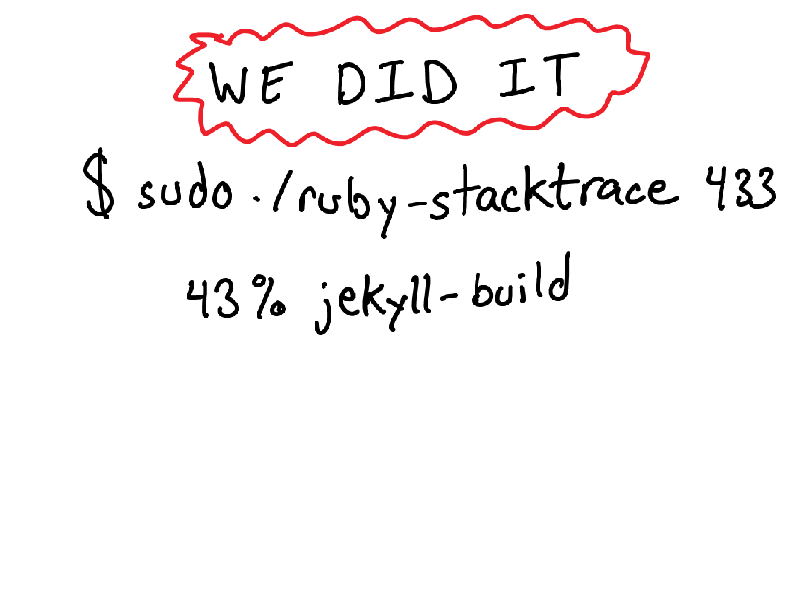 WE DID IT
$ sudo ./ruby-stacktrace 433
43% jekyll-build